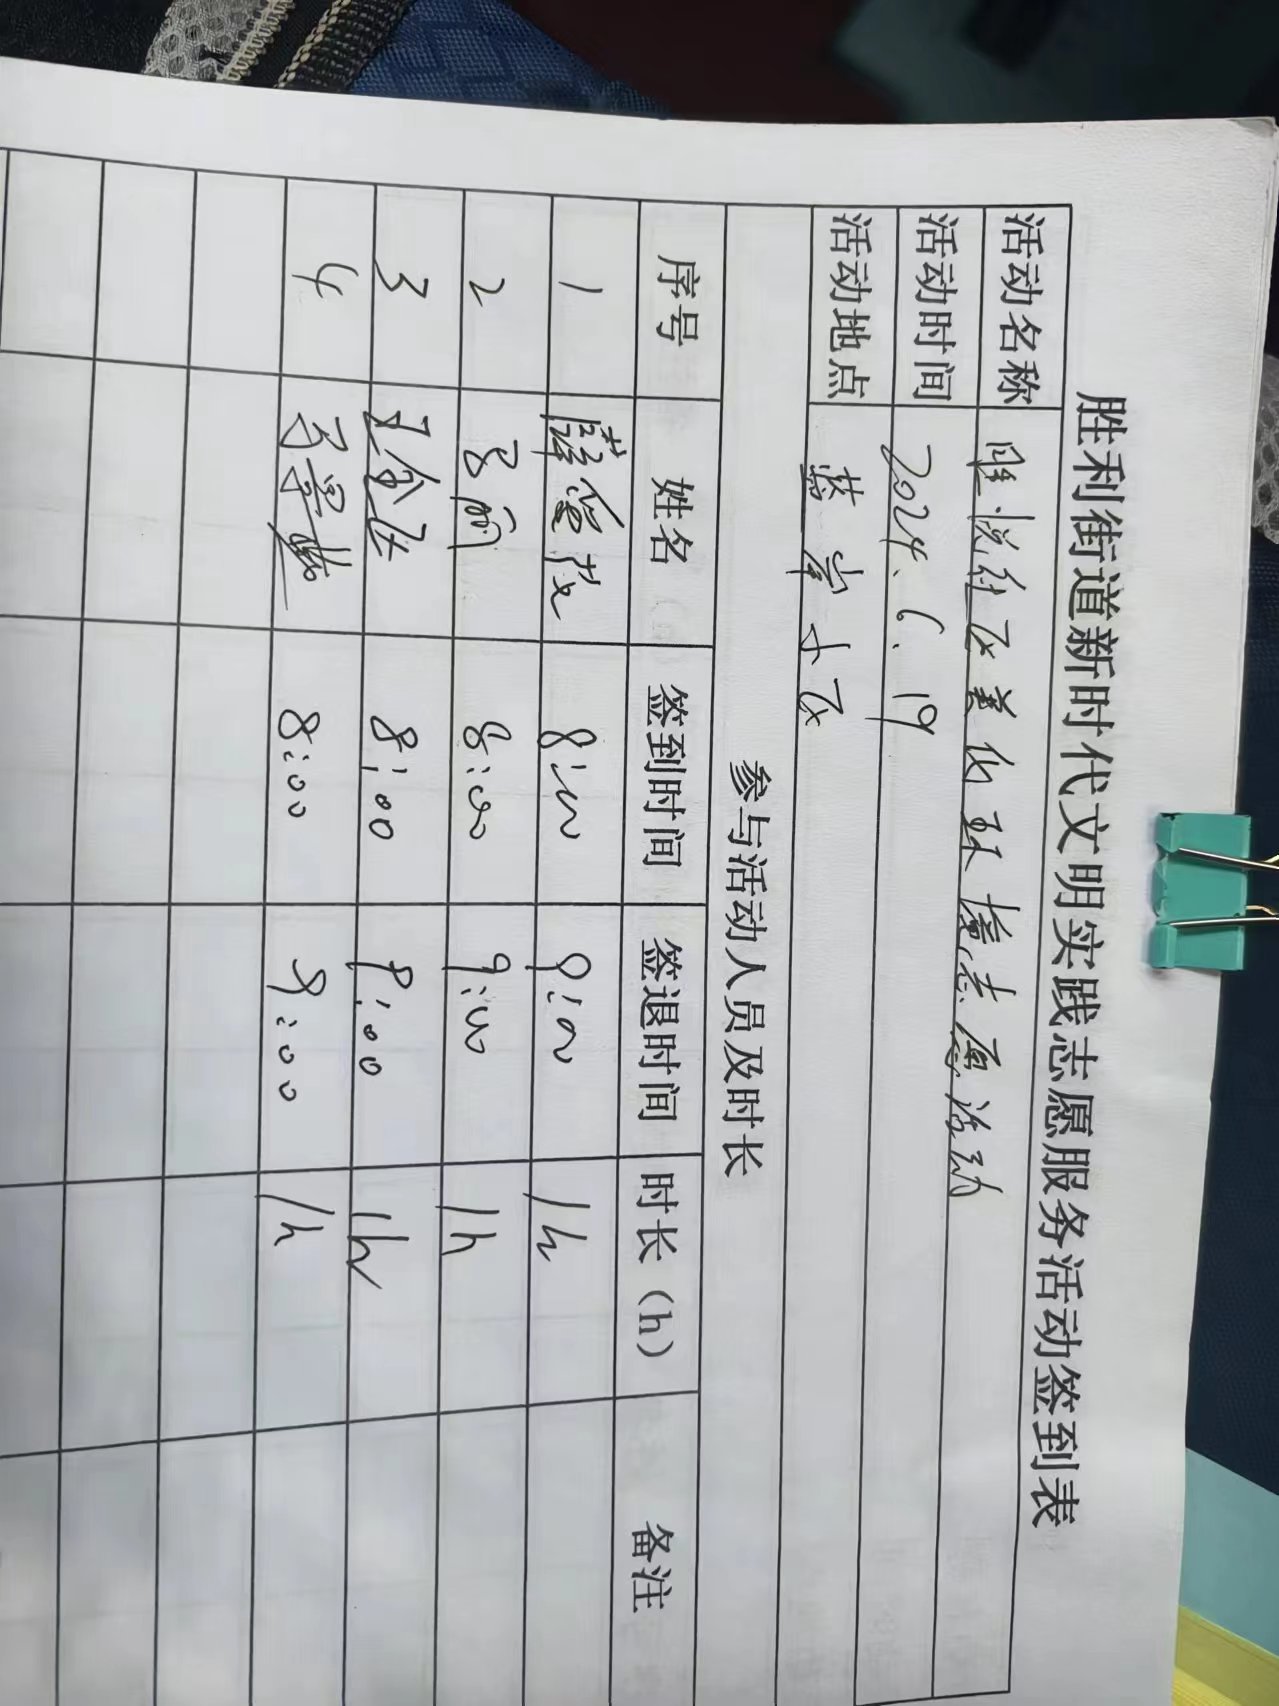 胜利街道新时代文明实践志愿服务活动签到表
活动名称 胜悦社区美化环境志愿活动
活动时间 2024.6.19
活动地点 小区
参与活动人员及时长
序号 姓名 签到时间 签退时间 时长（h） 备注
1 薛 8:00 9:00 1h
2 8:00 9:00 1h
3 8:00 9:00 1h
4 8:00 9:00 1h